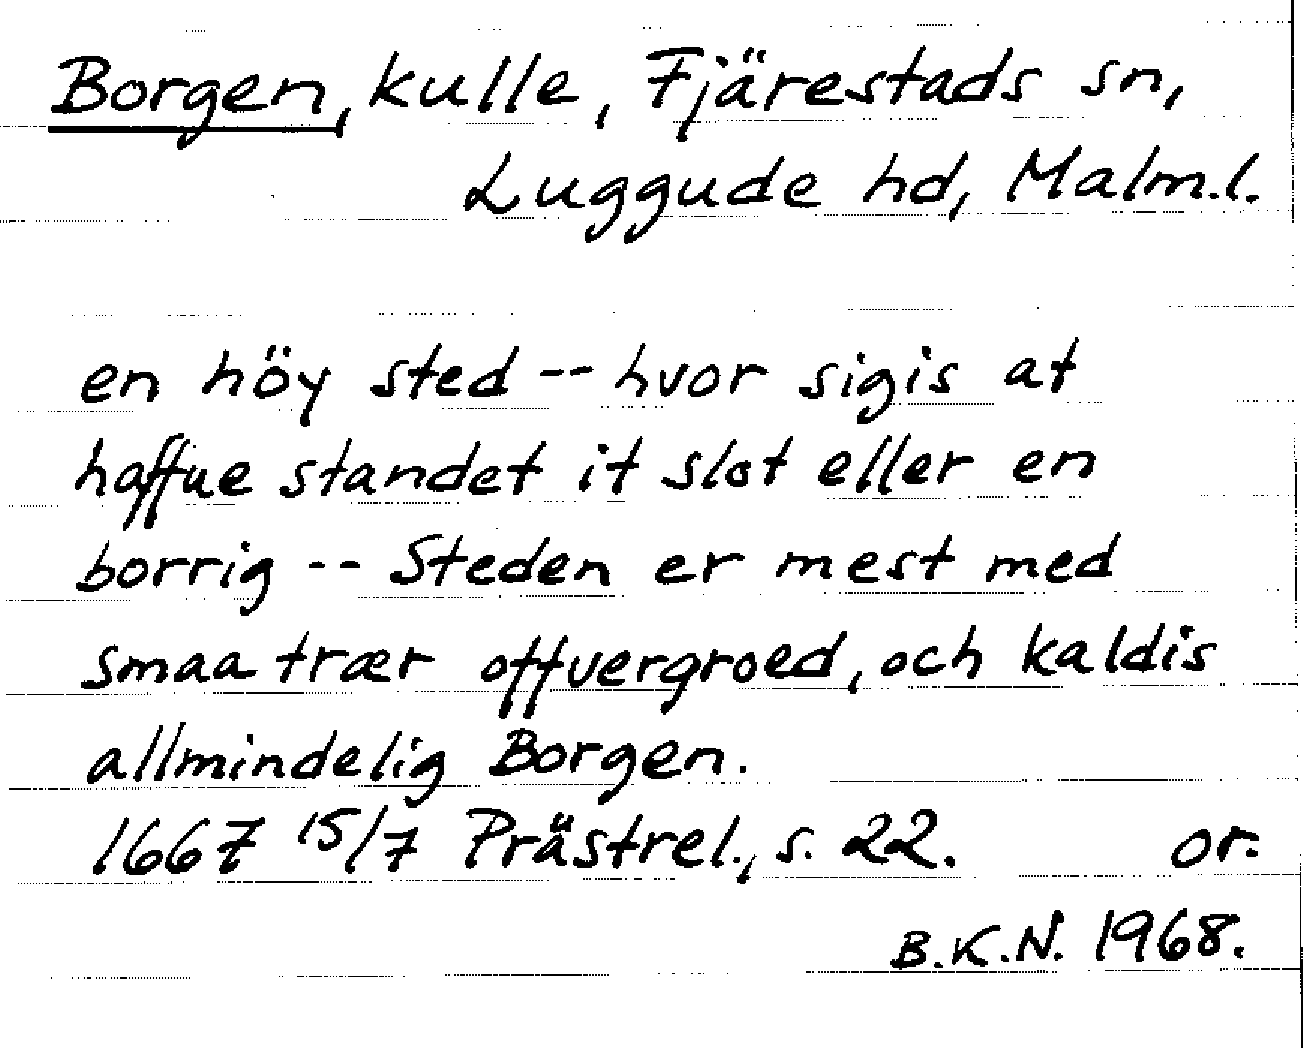 Borgen, kulle, Fjärestads sn,
Luggude hd, Malm.l.
en höy sted -- hvor sigis at
haffue standet it slot eller en
borrig -- Steden er mest med
smaa trær offvergroed, och kaldis
allmindelig Borgen.
1667 15/7 Prästrel., s. 22. or.
B.K.N. 1968.